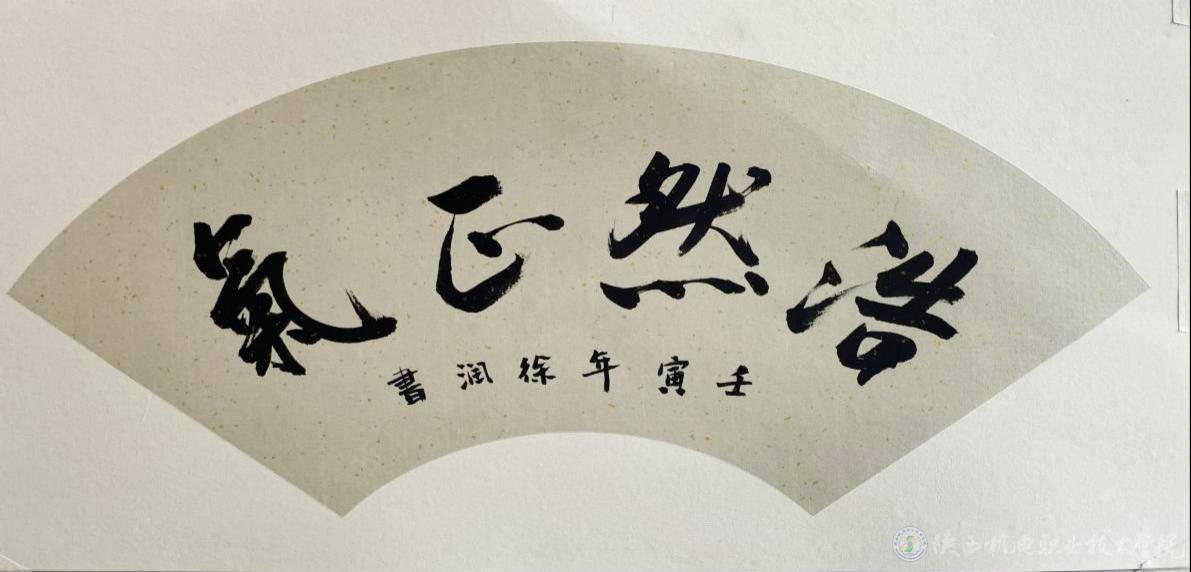 浩然正氣
壬寅年徐润書
陕西机电职业技术学院